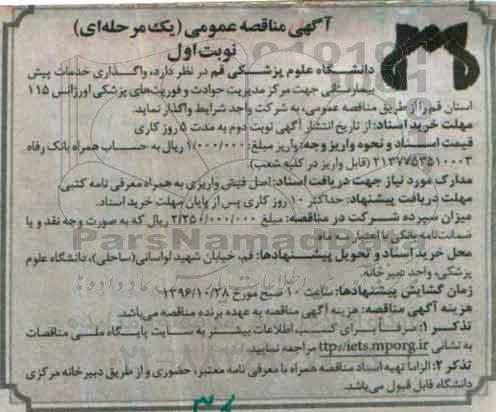 آگهی مناقصه عمومی (یک مرحله‌ای)
نوبت اول
دانشگاه علوم پزشکی قم در نظر دارد، واگذاری خدمات پیش
بیمارستانی جهت مرکز مدیریت حوادث و فوریت‌های پزشکی اورژانس ۱۱۵
استان قم را از طریق مناقصه عمومی، به شرکت واجد شرایط واگذار نماید.
مهلت خرید اسناد: از تاریخ انتشار آگهی نوبت دوم به مدت ۵ روز کاری
قیمت اسناد و نحوه واریز وجه: واریز مبلغ ۱/۰۰۰/۰۰۰ ریال به حساب همراه بانک رفاه
۲۱۳۷۷۵۳۵۱۰۰۰۳ (قابل واریز در کلیه شعب).
مدارک مورد نیاز جهت دریافت اسناد: اصل فیش واریزی به همراه معرفی نامه کتبی.
مهلت دریافت پیشنهاد: حداکثر ۱۰ روز کاری پس از پایان مهلت خرید اسناد.
میزان سپرده شرکت در مناقصه: مبلغ ۲/۲۵۰/۰۰۰/۰۰۰ ریال که به صورت وجه نقد و یا
ضمانت‌نامه بانکی با اعتبار
محل خرید اسناد و تحویل پیشنهادها: قم، خیابان شهید لواسانی(ساحلی)، دانشگاه علوم
پزشکی، واحد دبیرخانه.
زمان گشایش پیشنهادها: ساعت ۱۰ صبح مورخ ۱۳۹۶/۱۰/۲۸
هزینه آگهی مناقصه: هزینه آگهی مناقصه به عهده برنده مناقصه می‌باشد.
تذکر ۱: صرفاً برای کسب اطلاعات بیشتر به سایت پایگاه ملی مناقصات
به نشانی ttp://iets.mporg.ir مراجعه نمایید.
تذکر ۲: الزاما تهیه اسناد مناقصه همراه با معرفی نامه معتبر، حضوری و از طریق دبیرخانه مرکزی
دانشگاه قابل قبول می‌باشد.
ParsNamadData